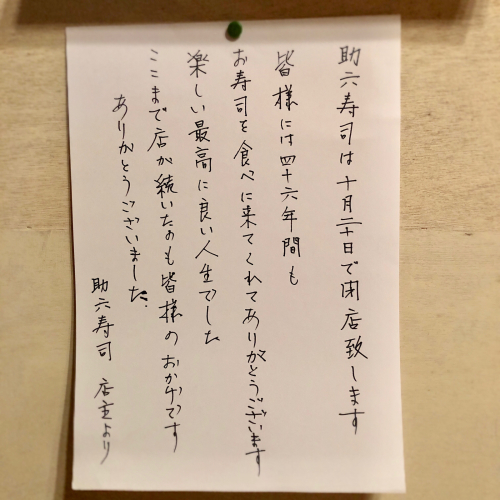 助六寿司は十月二十日で閉店致します
皆様には四十六年間も
お寿司を食べに来てくれてありがとうございます
楽しい最高に良い人生でした
ここまで店が続いたのも皆様のおかげです
ありがとうございました.
助六寿司 店主より